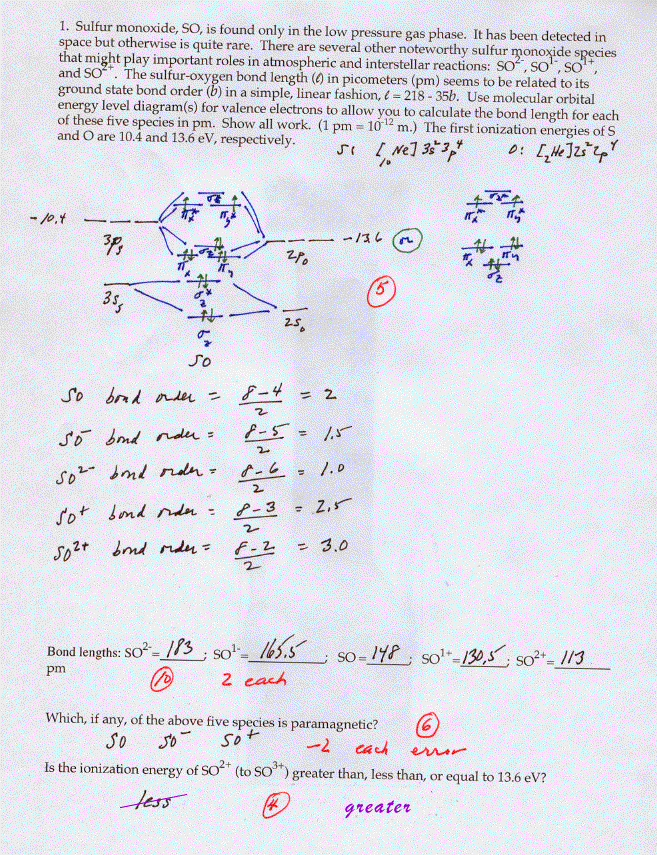 1. Sulfur monoxide, SO, is found only in the low pressure gas phase. It has been detected in
space but otherwise is quite rare. There are several other noteworthy sulfur monoxide species
that might play important roles in atmospheric and interstellar reactions: SO²⁻, SO¹⁻, SO¹⁺,
and SO²⁺. The sulfur-oxygen bond length (ℓ) in picometers (pm) seems to be related to its
ground state bond order (b) in a simple, linear fashion, ℓ = 218 - 35b. Use molecular orbital
energy level diagram(s) for valence electrons to allow you to calculate the bond length for each
of these five species in pm. Show all work. (1 pm = 10⁻¹² m.) The first ionization energies of S
and O are 10.4 and 13.6 eV, respectively.
S: [₁₀Ne] 3s² 3p⁴ O: [₂He] 2s² 2p⁴
σ* σ*
πx* πy* πx* πy*
-10.4 -13.6 or
3pS σz 2pO
πx πy πx πy
σz
5
3sS σz* 2sO
σz
SO
SO bond order = 8-4/2 = 2
SO⁻ bond order = 8-5/2 = 1.5
SO²⁻ bond order = 8-6/2 = 1.0
SO⁺ bond order = 8-3/2 = 2.5
SO²⁺ bond order = 8-2/2 = 3.0
Bond lengths: SO²⁻= 183 ; SO¹⁻= 165.5 ; SO = 148 ; SO¹⁺= 130.5 ; SO²⁺= 113
pm
10 2 each
Which, if any, of the above five species is paramagnetic? 6
SO SO⁻ SO⁺ -2 each error
Is the ionization energy of SO²⁺ (to SO³⁺) greater than, less than, or equal to 13.6 eV?
less 4 greater